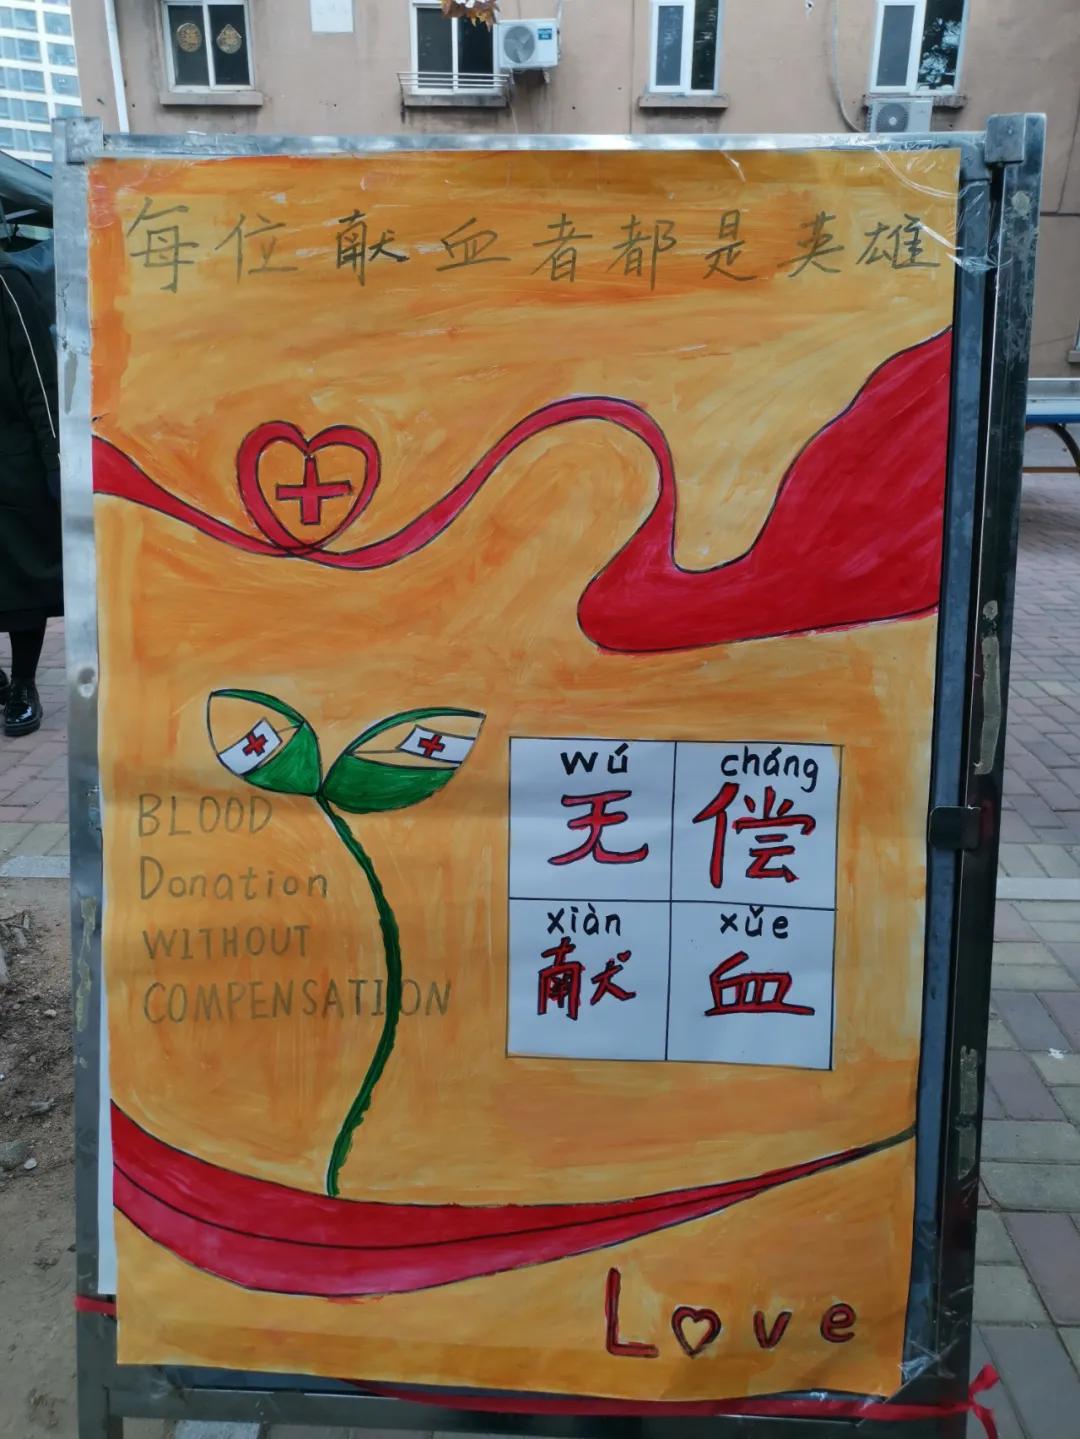 每位献血者都是英雄
BLOOD
Donation
WITHOUT
COMPENSATION
wú cháng
无偿
xiàn xǔe
献血
Love